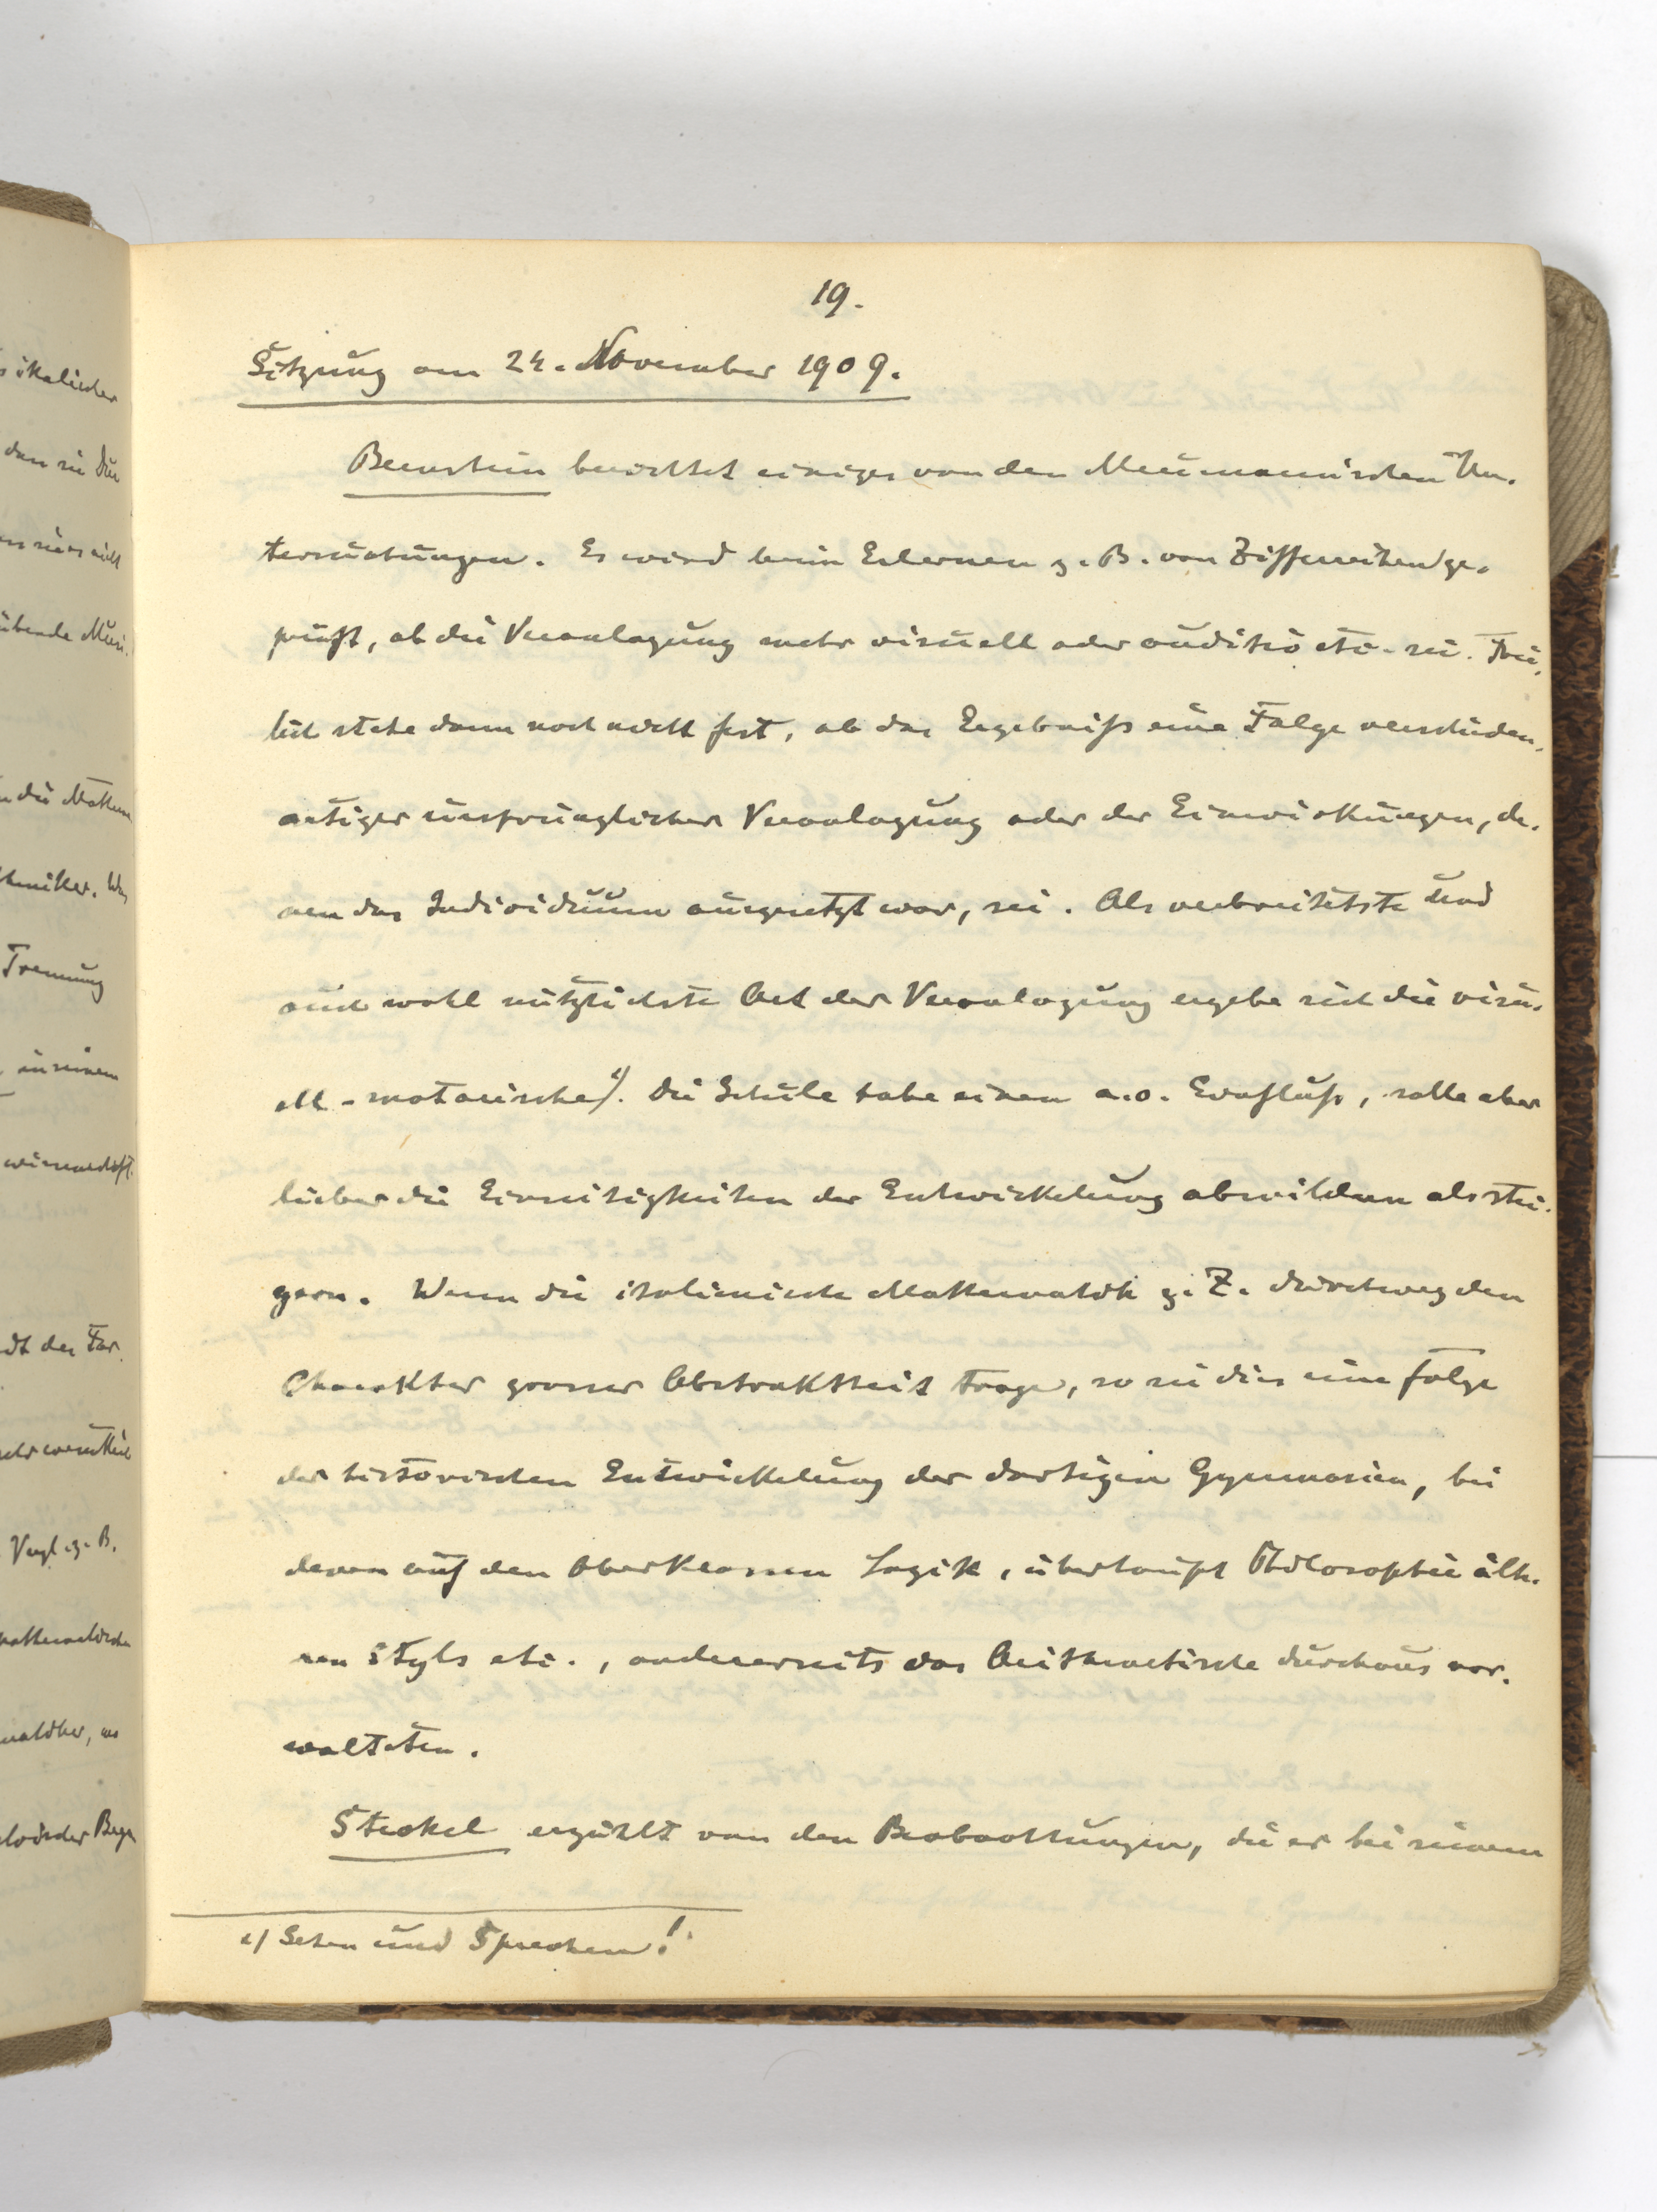 19.
Sitzung am 24. November 1909.
Bernstein berichtet einiges von den Meumannischen Un-
tersuchungen. Es wird beim Erlernen z. B. von Ziffernreihen ge-
prüft, ob die Veranlagung mehr visuell oder auditiv etc. sei. Frei-
lich stehe dann noch nicht fest, ob das Ergebniss eine Folge verschieden-
artiger ursprünglicher Veranlagung oder der Einwirkungen, de-
nen das Individuum ausgesetzt war, sei. Als verbreitetste und
auch wohl nützlichste Art der Veranlagung ergebe sich die visu-
ell-motorische 1). Die Schule habe einen a. o. Einfluss, solle aber
lieber die Einseitigkeiten der Entwickelung abmildern als stei-
gern. Wenn die italienische Mathematik z. Z. durchweg den
Charakter grosser Abstraktheit trage, so sei dies eine Folge
der historischen Entwickelung der dortigen Gymnasien, bei
denen auf den Oberklassen Logik, überhaupt Philosophie älte-
ren Styls etc., andererseits das Arithmetische durchaus vor-
walteten.
Steckel erzählt von den Beobachtungen, die er bei seinem
1) Sehen und Sprechen!